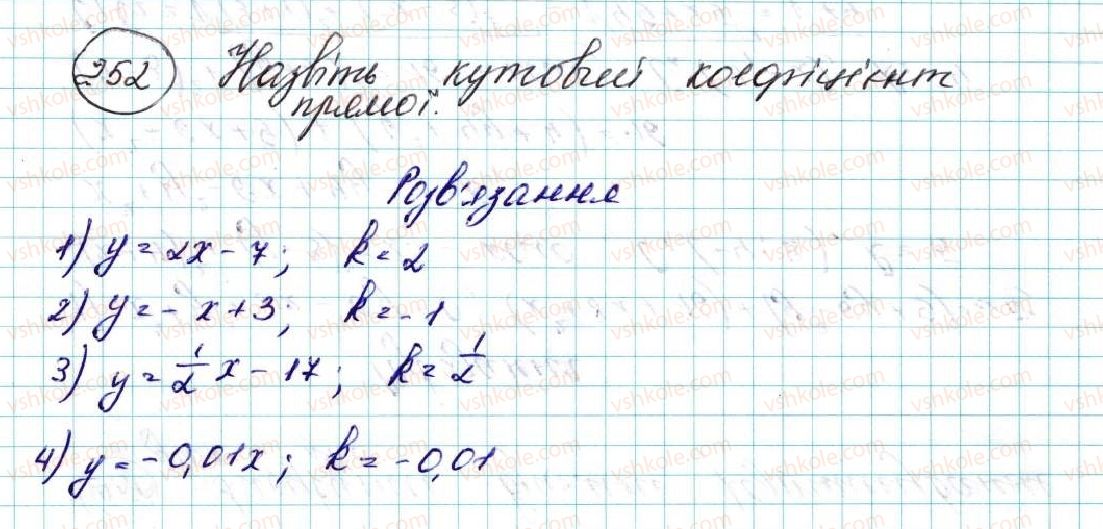 952 Назвіть кутовий коефіцієнт
прямої.
Розв'язання
1) y = 2x - 7; k = 2
2) y = - x + 3; k = -1
3) y = 1/2 x - 17; k = 1/2
4) y = -0,01x; k = -0,01